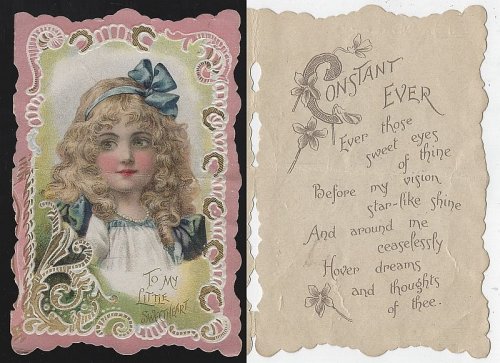 To My
Little
Sweetheart
Constant
Ever
Ever those
sweet eyes
of thine
Before my vision
star-like shine
And around me
ceaselessly
Hover dreams
and thoughts
of thee.